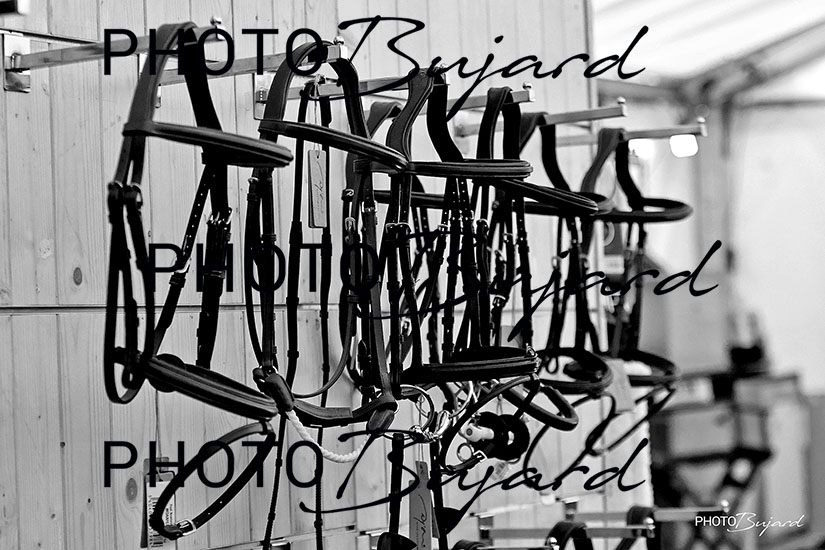 PHOTO Bujard
PHOTO Bujard
PHOTO Bujard
PHOTO Bujard